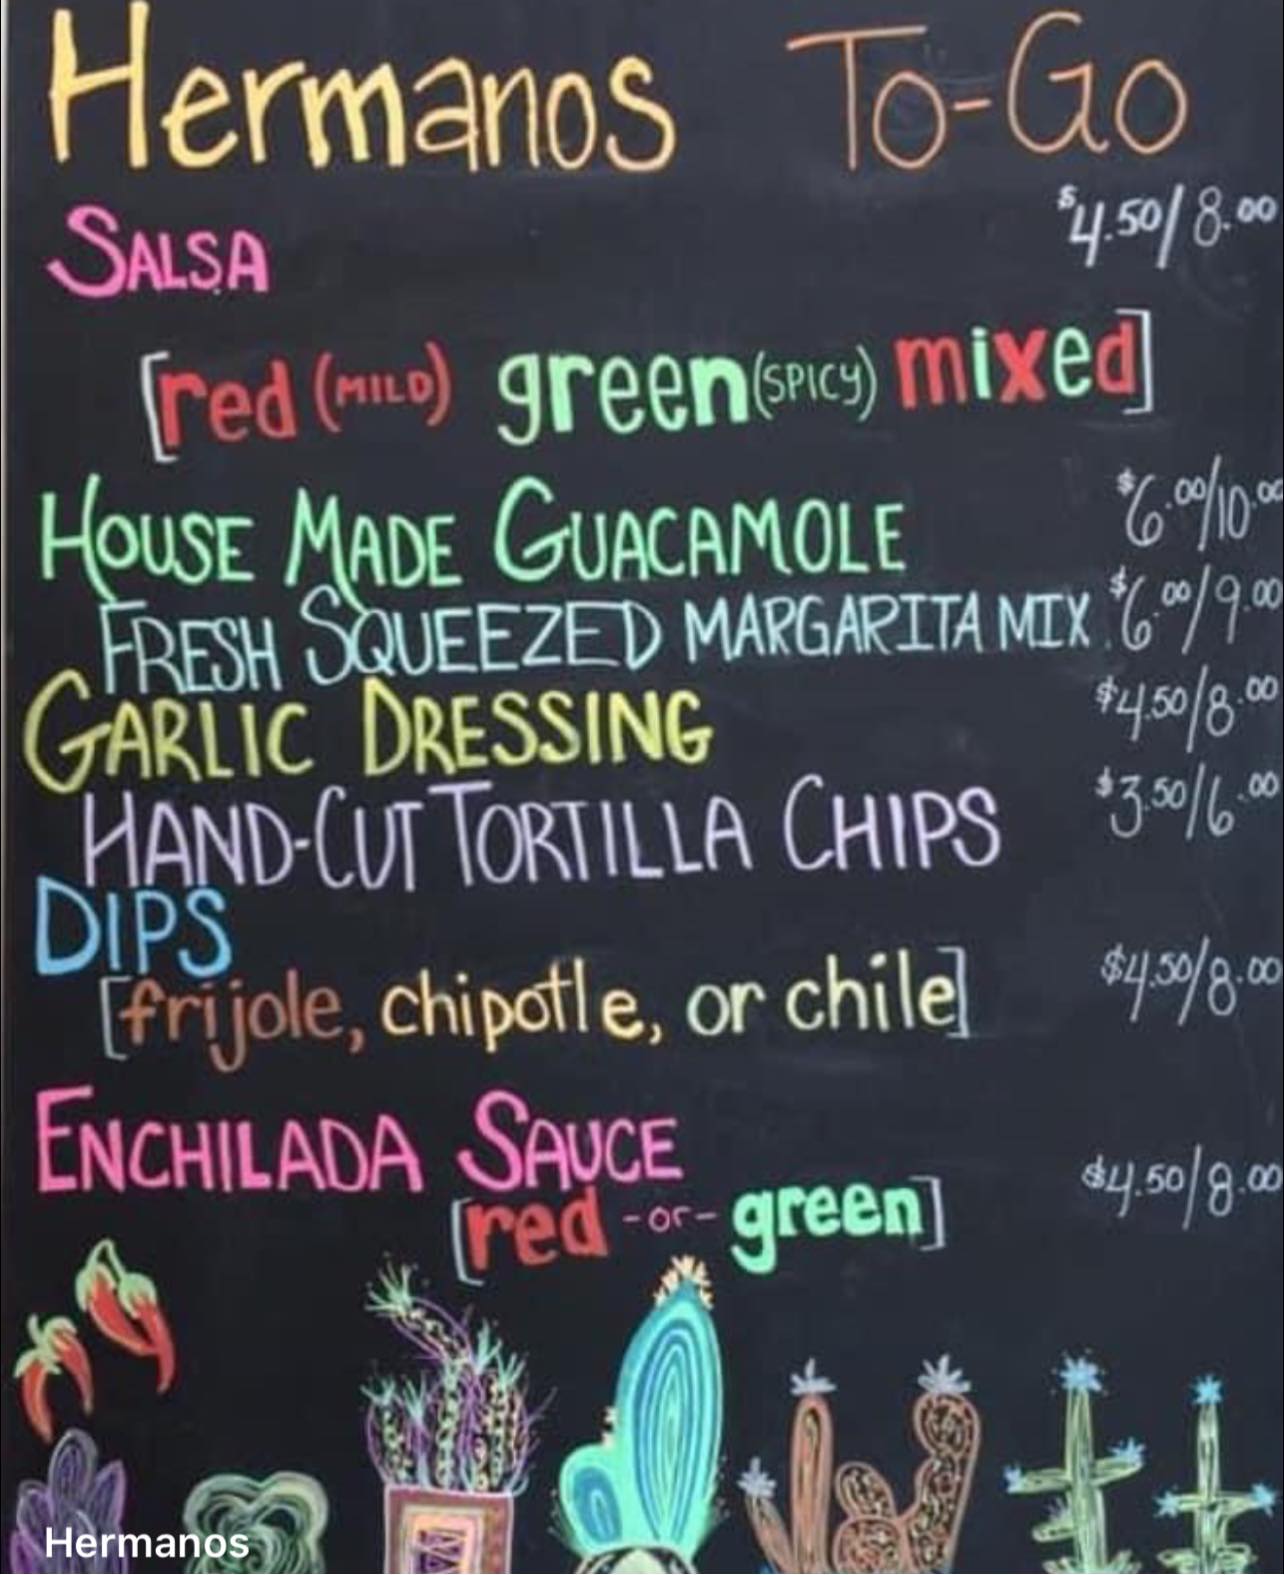 Hermanos To-Go
SALSA $4.50/8.00
[red (MILD) green (SPICY) mixed]
HOUSE MADE GUACAMOLE $6.00/10.00
FRESH SQUEEZED MARGARITA MIX $6.00/9.00
GARLIC DRESSING $4.50/8.00
HAND-CUT TORTILLA CHIPS $3.50/6.00
DIPS
[frijole, chipotle, or chile] $4.50/8.00
ENCHILADA SAUCE $4.50/8.00
[red -or- green]
Hermanos